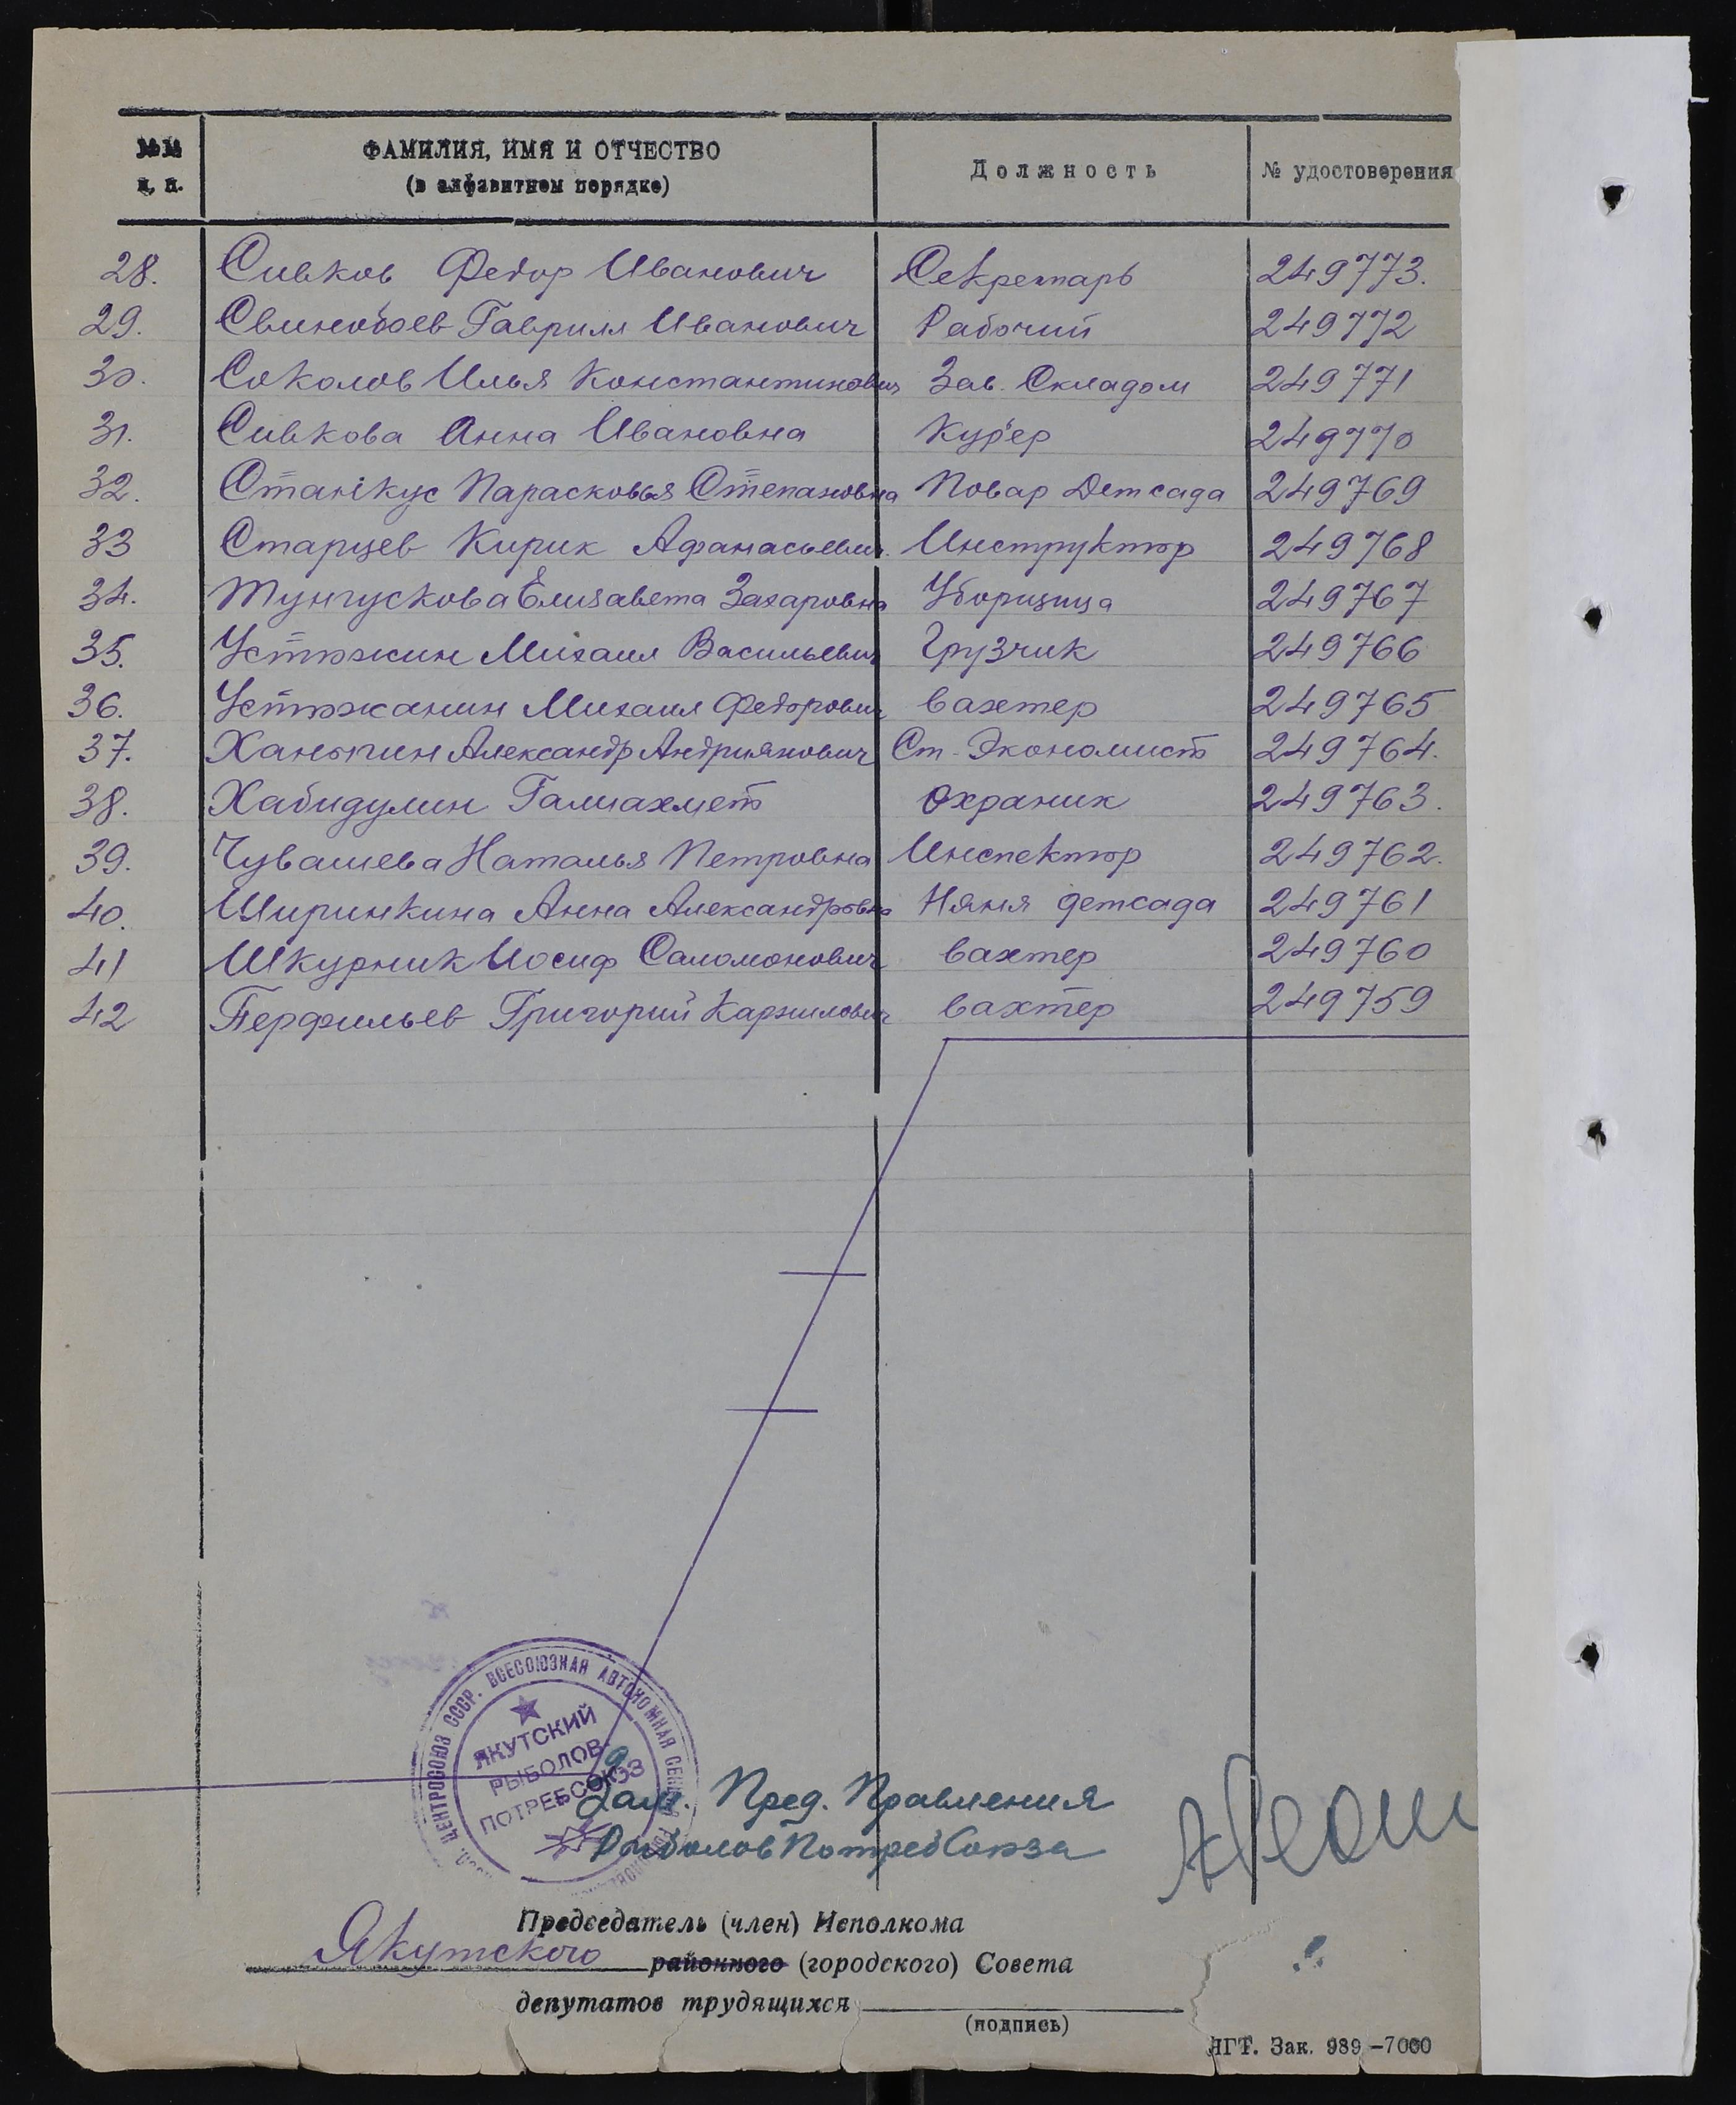 №№ п. п. ФАМИЛИЯ, ИМЯ И ОТЧЕСТВО (в алфавитном порядке) Должность № удостоверения
28. Сивков Федор Иванович Секретарь 249773.
29. Свинобоев Гаврилл Иванович Рабочий 249772
30. Соколов Илья Константинович Зав. Складом 249771
31. Сивкова Анна Ивановна Кур'ер 249770
32. Станікус Парасковья Степановна Повар Детсада 249769
33 Старцев Кирик Афанасьевич. Инструктор 249768
34. Тунгускова Елизавета Захаровна Уборщица 249767
35. Устюжин Михаил Васильевич Грузчик 249766
36. Устюжанин Михаил Федорович вахтер 249765
37. Ханыгин Александр Андриянович Ст. Экономист 249764.
38. Хабидулин Галиахмет Охраник 249763.
39. Чувашева Наталья Петровна Инспектор 249762.
40. Ширинкина Анна Александровна Няня детсада 249761
41 Шкурник Иосиф Саломонович вахтер 249760
42 Перфильев Григорий вахтер 249759
ЦЕНТРОСОЮЗ СССР. ВСЕСОЮЗНАЯ АВТОНОМНАЯ
ЯКУТСКИЙ
РЫБОЛОВ-
ПОТРЕБСОЮЗ
Зам. Пред. Правления
РыболовПотребСоюза
Председатель (член) Исполкома
Якутского районного (городского) Совета
депутатов трудящихся
(подпись)
ЯГТ. Зак. 989-7000